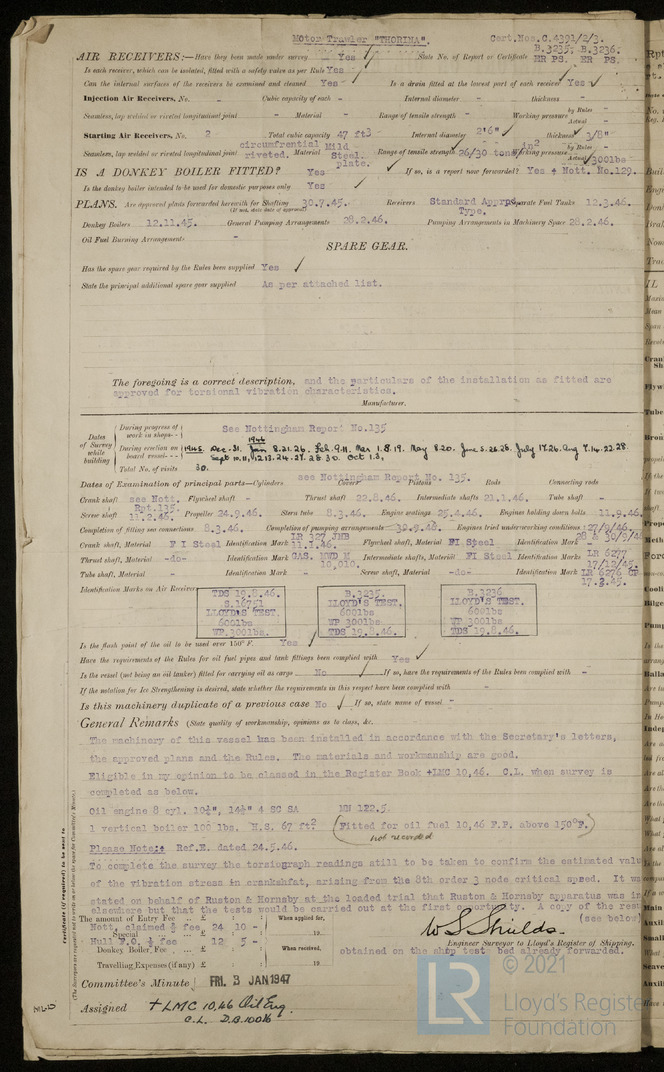 Motor Trawler "THORINA". Cert.Nos.C.4391/2/3.
B.3235. B.3236.
AIR RECEIVERS:—Have they been made under survey Yes State No. of Report or Certificate ER PS. ER PS.
Is each receiver, which can be isolated, fitted with a safety valve as per Rule Yes
Can the internal surfaces of the receivers be examined and cleaned Yes Is a drain fitted at the lowest part of each receiver Yes
Injection Air Receivers, No. - Cubic capacity of each - Internal diameter - thickness -
Seamless, lap welded or riveted longitudinal joint - Material - Range of tensile strength - Working pressure by Rules - Actual -
Starting Air Receivers, No. 2 Total cubic capacity 47 ft3 Internal diameter 2'6" thickness 3/8"
Seamless, lap welded or riveted longitudinal joint circumfrential riveted. Material Mild Steel plate. Range of tensile strength 26/30 tons in2 Working pressure by Rules - Actual 300lbs
IS A DONKEY BOILER FITTED? Yes If so, is a report now forwarded? Yes + Nott. No.129.
Is the donkey boiler intended to be used for domestic purposes only Yes
PLANS. Are approved plans forwarded herewith for Shafting 30.7.45. Receivers Standard Approved Type. Separate Fuel Tanks 12.3.46.
(If not, state date of approval)
Donkey Boilers 12.11.45. General Pumping Arrangements 28.2.46. Pumping Arrangements in Machinery Space 28.2.46.
Oil Fuel Burning Arrangements -
SPARE GEAR.
Has the spare gear required by the Rules been supplied Yes
State the principal additional spare gear supplied As per attached list.
The foregoing is a correct description, and the particulars of the installation as fitted are
approved for torsional vibration characteristics.
Manufacturer.
Dates of Survey while building
During progress of work in shops-- See Nottingham Report No.135
1946
During erection on board vessel--- 1945. Dec. 31. Jan 8.21.26. Feb. 9.11. Mar 1.8.19. May 8.20. June 5.26.28. July 17.26. Aug 7.14.22.28.
Sept 10.11.12.13.24.27.28.30. Oct 1.3.
Total No. of visits 30.
Dates of Examination of principal parts—Cylinders see Nottingham Report No. 135. Covers Pistons Rods Connecting rods
Crank shaft see Nott. Rpt.135. Flywheel shaft - Thrust shaft 22.8.46. Intermediate shafts 21.1.46. Tube shaft -
Screw shaft 11.2.46. Propeller 24.9.46. Stern tube 8.3.46. Engine seatings 25.4.46. Engine holding down bolts 11.9.46.
Completion of fitting sea connections 8.3.46. Completion of pumping arrangements 30.9.46. Engines tried under working conditions 27/9/46. 28 & 30/9/46
Crank shaft, Material F I Steel Identification Mark LR 327 JHB 11.1.46. Flywheel shaft, Material FI Steel Identification Mark -
Thrust shaft, Material -do- Identification Mark GAS. NWD M 10,010. Intermediate shafts, Material FI Steel Identification Marks LR 6277 17/12/45.
Tube shaft, Material - Identification Mark - Screw shaft, Material -do- Identification Mark LR 6276 17.3.45.
Identification Marks on Air Receivers
TDS 19.8.46.
S.16751
LLOYD'S TEST.
600lbs
WP 300lbs.
B.3235.
LLOYD'S TEST.
600lbs
WP 300lbs
TDS 19.8.46.
B.3236
LLOYD'S TEST.
600lbs
WP 300lbs
TDS 19.8.46.
Is the flash point of the oil to be used over 150°F. Yes
Have the requirements of the Rules for oil fuel pipes and tank fittings been complied with Yes
Is the vessel (not being an oil tanker) fitted for carrying oil as cargo No If so, have the requirements of the Rules been complied with -
If the notation for Ice Strengthening is desired, state whether the requirements in this respect have been complied with -
Is this machinery duplicate of a previous case No If so, state name of vessel -
General Remarks (State quality of workmanship, opinions as to class, &c.
The machinery of this vessel has been installed in accordance with the Secretary's letters,
the approved plans and the Rules. The materials and workmanship are good.
Eligible in my opinion to be classed in the Register Book +LMC 10,46. C.L. when survey is
completed as below.
Oil engine 8 cyl. 10¾", 14½" 4 SC SA MN 122.5.
1 vertical boiler 100 lbs. H.S. 67 ft2 (Fitted for oil fuel 10,46 F.P. above 150°F.)
not recorded
Please Note:+ Ref.E. dated 24.5.46.
To complete the survey the torsiograph readings still to be taken to confirm the estimated valu
of the vibration stress in crankshfat, arising from the 8th order 3 node critical speed. It wa
stated on behalf of Ruston & Hornsby at the loaded trial that Ruston & Hornsby apparatus was in
elsewhere but that the tests would be carried out at the first opportunity. A copy of the res
(see below)
The amount of Entry Fee .. £ : : When applied for,
Nott. claimed ½ fee, 24 10 -
Special .. 19..
Hull F.O. ½ fee 12 5 -
Donkey Boiler Fee .. £ : : When received,
Travelling Expenses (if any) £ : : 19
W S Shields.
Engineer Surveyor to Lloyd's Register of Shipping.
obtained on the shop test bed already forwarded.
Committee's Minute FRI. 3 JAN 1947
Assigned + LMC 10,46 Oil Eng.
C.L. D.B.100 lb
© 2021
LR
Lloyd's Register
Foundation